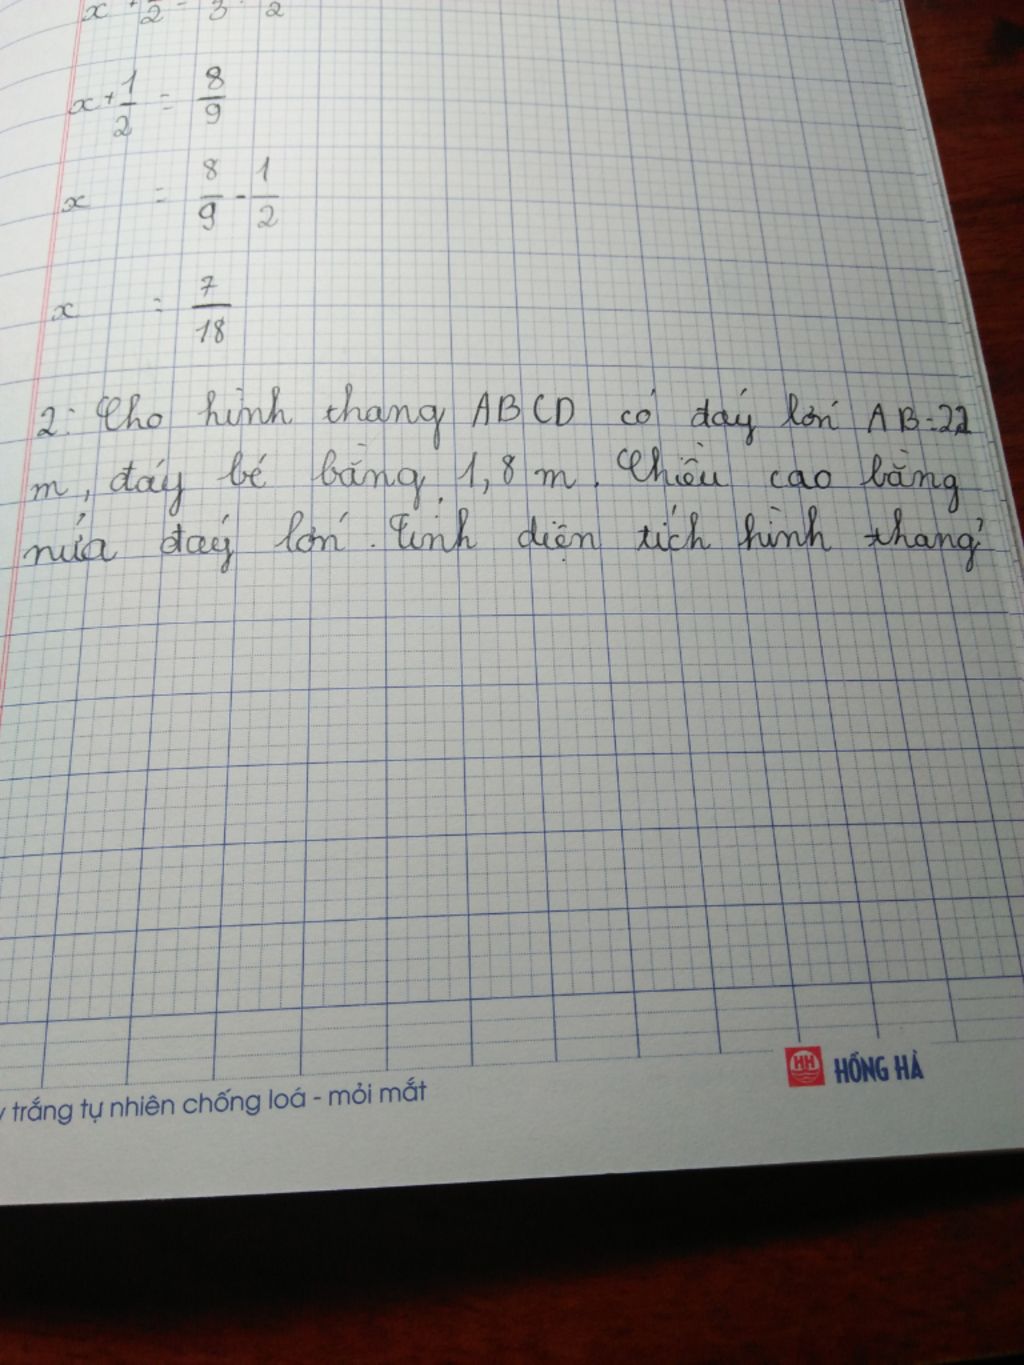 x + 1/2 = 3 : 2
x + 1/2 = 8/9
x = 8/9 - 1/2
x = 7/18
2: Cho hình thang ABCD có đáy lớn AB = 22
m, đáy bé bằng 1,8 m. Chiều cao bằng
nửa đáy lớn. Tính diện tích hình thang?
HH HỒNG HÀ
trắng tự nhiên chống loá - mỏi mắt